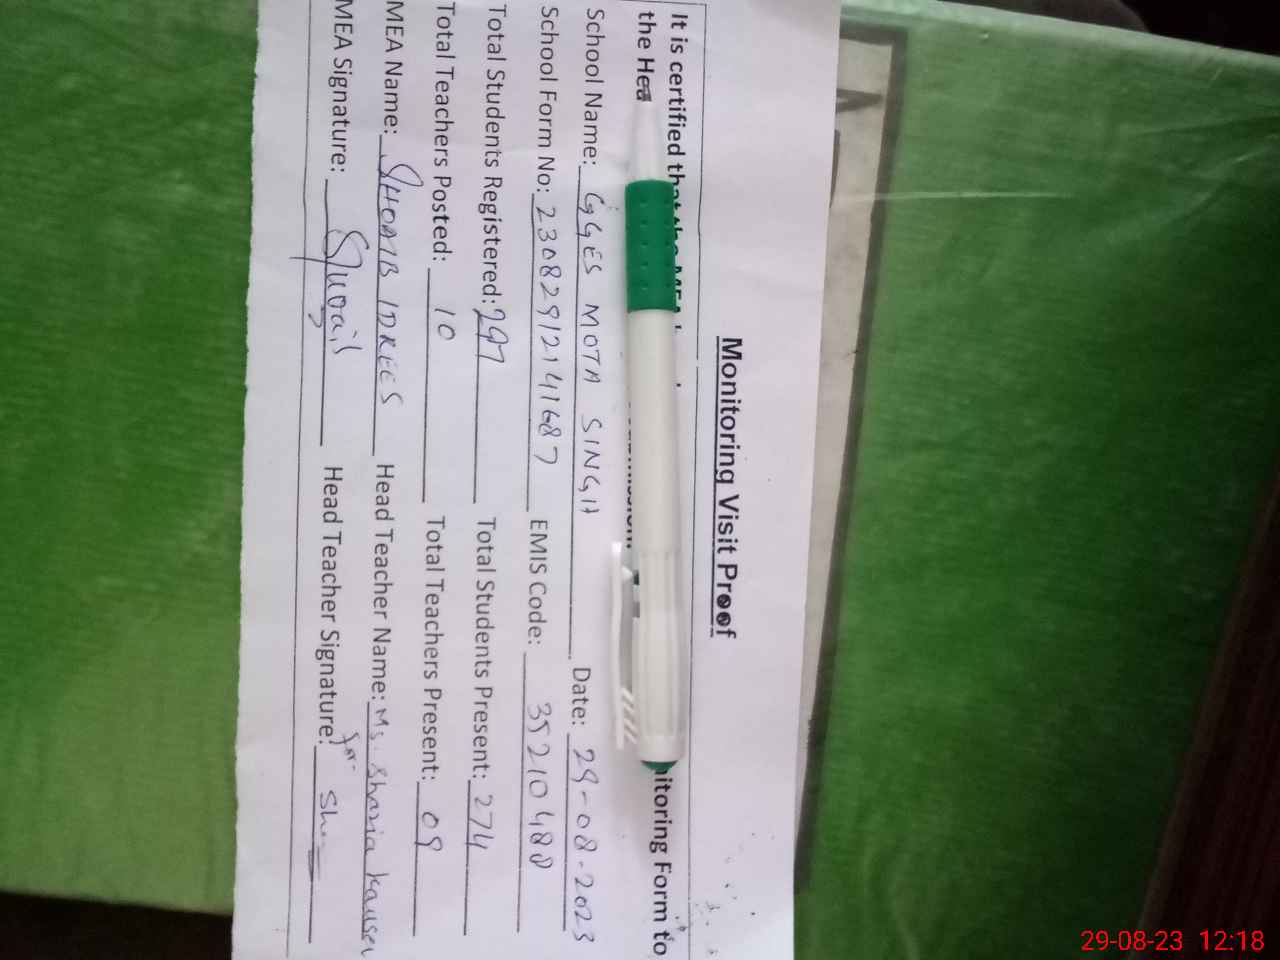 Monitoring Visit Proof
It is certified that the MEA
the Hea itoring Form to
School Name: GGES MOTA SINGH Date: 29-08-2023
School Form No: 23082912141687 EMIS Code: 35210488
Total Students Registered: 297 Total Students Present: 274
Total Teachers Posted: 10 Total Teachers Present: 09
MEA Name: SHOAIB IDREES Head Teacher Name: Ms. Shazia Kausar
MEA Signature: Shoaib Head Teacher Signature: for
29-08-23 12:18